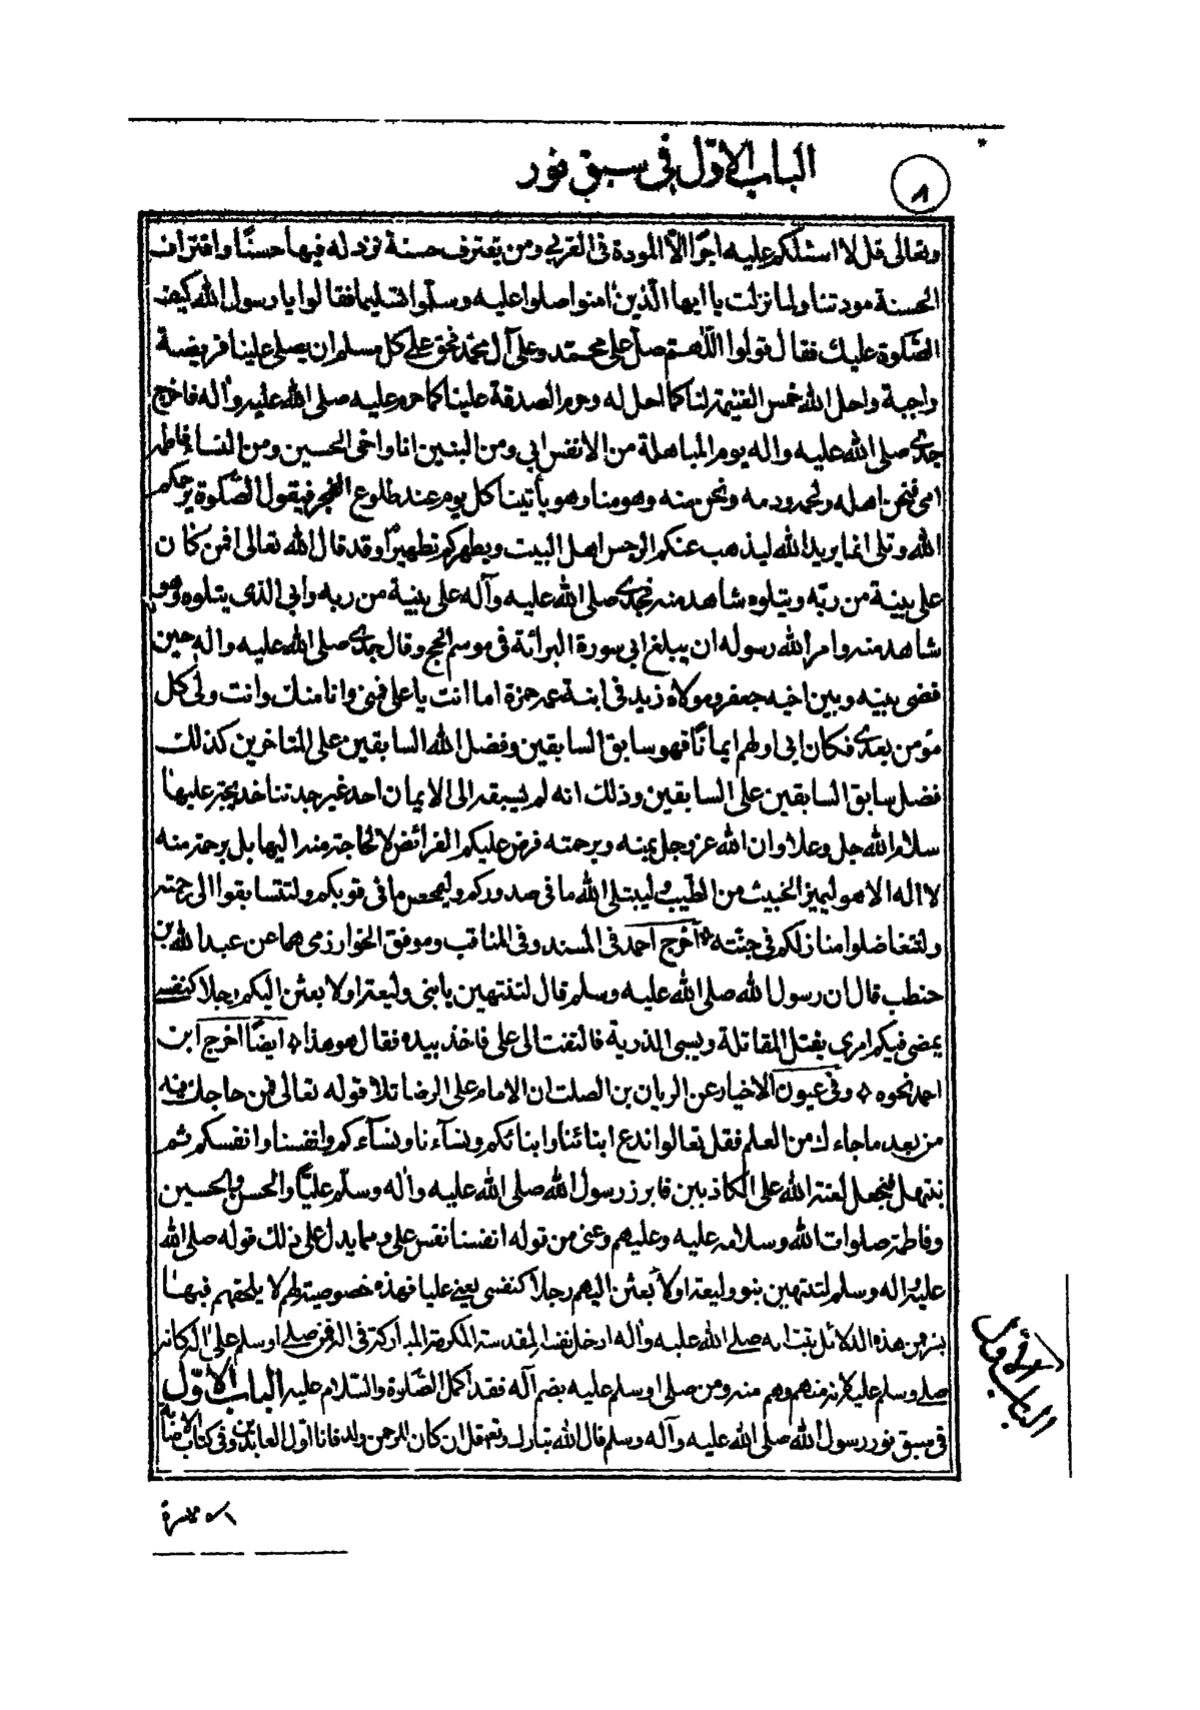 الباب الاوّل فى سبق نور
٨
وتعالى قل لا اسئلكم عليه اجرًا الّا المودة فى القربى ومن يقترف حسنة نزد له فيها حسنًا واقتراف
الحسنة مودتنا ولما نزلت يا ايها الّذين امنوا صلوا عليه وسلّموا تسليما فقالوا يا رسول الله كيف
الصّلوة عليك فقال قولوا اللّهم صلّ على محمّد وعلى آل محمّد فحق على كل مسلم ان يصلى علينا فريضة
واجبة واحل الله خمس الغنيمة لنا كما احل له وحرم الصدقة علينا كما حرم عليه صلى الله عليه وآله فاخرج
جدّى صلى الله عليه واله يوم المباهلة من الانفس ابى ومن البنين انا واخى الحسين ومن النساء فاطمة
امى فنحن اهله ولحمه ودمه ونحن منه وهو منا وهو يأتينا كل يوم عند طلوع الفجر فيقول الصّلوة يرحمكم
الله وتلى انما يريد الله ليذهب عنكم الرجس اهل البيت ويطهركم تطهيرًا وقد قال الله تعالى افمن كان
على بينة من ربّه ويتلوه شاهد منه فجدّى صلى الله عليه وآله على بينة من ربه وابى الذى يتلوه وهو
شاهد منه وامر الله رسوله ان يبلغ ابى سورة البرائة فى موسم الحج وقال جدّى صلى الله عليه واله حين
قضى بينه وبين اخيه جعفر ومولاه زيد فى ابنة عمه حمزة اما انت يا على فمنى وانا منك وانت ولى كل
مؤمن بعدى فكان ابى اولهم ايمانًا فهو سابق السابقين وفضل الله السابقين على المتاخرين كذلك
فضل سابق السابقين على السابقين وذلك انه لم يسبقه الى الايمان احد غير جدتنا خديجة عليها
سلام الله جل وعلا وان الله عز وجل بمنه وبرحمته فرض عليكم الفرائض لا لحاجة منه اليها بل برحمة منه
لا اله الا هو ليميز الخبيث من الطّيب وليبتلى الله ما فى صدوركم وليمحص ما فى قلوبكم ولتتسابقوا الى رحمته
ولتتفاضلوا منازلكم فى جنّته اخرج احمد فى المسند وفى المناقب وموفق الخوارزمى هما عن عبد الله بن
حنطب قال ان رسول الله صلى الله عليه وسلم قال لتنتهين يا بنى وليعة او لا بعثن اليكم رجلا كنفسى
يمضى فيكم امرى يقتل المقاتلة ويسبى الذرية فالتفت الى على فاخذ بيده فقال هو هذا ايضًا اخرج ابن
احمد نحوه وفى عيون الاخبار عن الريان بن الصلت ان الامام على الرضا تلا قوله تعالى فمن حاجك فيه
من بعد ما جاءك من العلم فقل تعالوا ندع ابنائنا وابنائكم ونسآءنا ونسآءكم وانفسنا وانفسكم ثم
نبتهل فنجعل لعنة الله على الكاذبين فابرز رسول الله صلى الله عليه واله وسلّم عليًّا والحسن والحسين
وفاطمة صلوات الله وسلامه عليه وعليهم وعنى من قوله انفسنا نفس على ومما يدل على ذلك قوله صلى الله
عليه واله وسلم لتنتهين بنو وليعة او لا بعثن اليهم رجلا كنفسى يعنى عليا فهذه خصوصية لهم لا يلحقهم فيها
بشر من هذه الدلائل ثبت انه صلى الله عليه وآله ادخل نفسه المقدسة المكرمة المباركة فى
صلى وسلم عليه لانه منهم وهم منه ومن صلى او سلم عليه بضم آله فقد اكمل الصّلوة والسّلام عليه الباب الاوّل
فى سبق نور رسول الله صلى الله عليه وآله وسلم قال الله تبارك وتعالى قل ان كان للرحمن ولد فانا اوّل العابدين وفى كتاب
الباب الأول